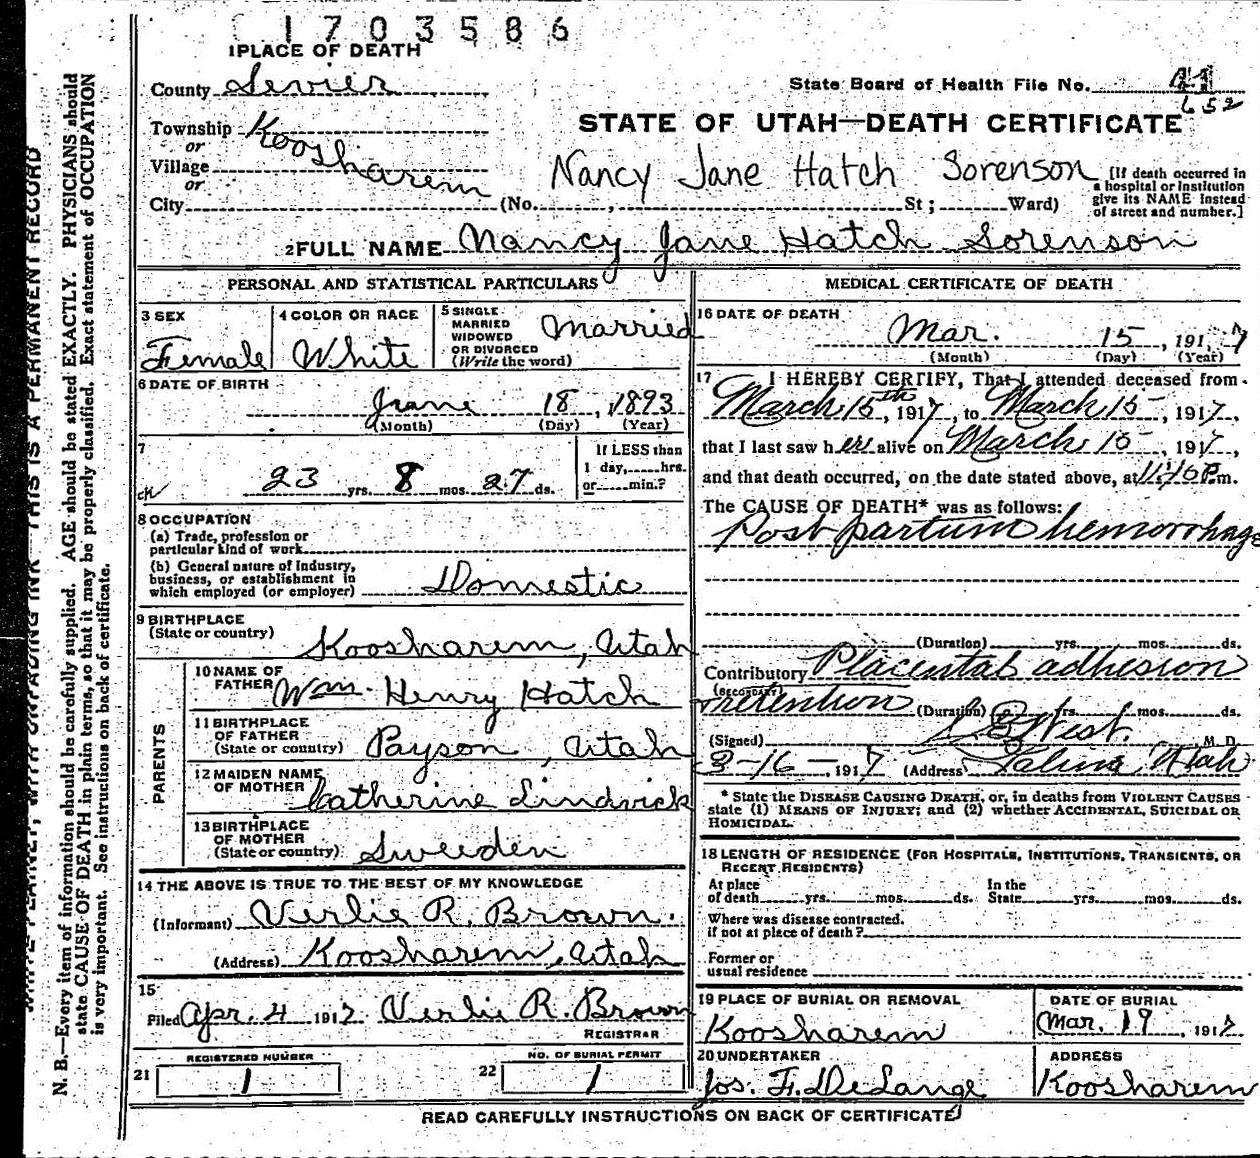 1703586
1 PLACE OF DEATH
County Sevier
State Board of Health File No. 41
652
Township Koosharem
or
Village
or
STATE OF UTAH—DEATH CERTIFICATE
Nancy Jane Hatch Sorenson
City (No. , St; Ward)
[If death occurred in
a hospital or institution
give its NAME instead
of street and number.]
2 FULL NAME Nancy Jane Hatch Sorenson
PERSONAL AND STATISTICAL PARTICULARS
3 SEX
Female
4 COLOR OR RACE
White
5 SINGLE
MARRIED
WIDOWED
OR DIVORCED
(Write the word)
Married
6 DATE OF BIRTH
June 18, 1893
(Month) (Day) (Year)
7
23 yrs. 8 mos. 27 ds.
If LESS than
1 day, hrs.
or min.?
8 OCCUPATION
(a) Trade, profession or
particular kind of work
(b) General nature of industry,
business, or establishment in
which employed (or employer) Domestic
9 BIRTHPLACE
(State or country) Koosharem, Utah
PARENTS
10 NAME OF
FATHER Wm. Henry Hatch
11 BIRTHPLACE
OF FATHER
(State or country) Payson, Utah
12 MAIDEN NAME
OF MOTHER Catherine
13 BIRTHPLACE
OF MOTHER
(State or country) Sweeden
14 THE ABOVE IS TRUE TO THE BEST OF MY KNOWLEDGE
(Informant) Verlie R. Brown.
(Address) Koosharem, Utah
15
Filed Apr. 4 1917 Verlie R. Brown
REGISTRAR
21 REGISTERED NUMBER
1
22 NO. OF BURIAL PERMIT
1
MEDICAL CERTIFICATE OF DEATH
16 DATE OF DEATH
Mar. 15, 1917
(Month) (Day) (Year)
17 I HEREBY CERTIFY, That I attended deceased from
March 15th, 1917, to March 15, 1917,
that I last saw her alive on March 15, 1917,
and that death occurred, on the date stated above, at P.m.
The CAUSE OF DEATH* was as follows:
Post partum hemorrhage
(Duration) yrs. mos. ds.
Contributory Placental adhesion
(SECONDARY)
retention (Duration) yrs. mos. ds.
(Signed) West. M. D.
3-16-, 1917 (Address) Salina, Utah
* State the DISEASE CAUSING DEATH, or, in deaths from VIOLENT CAUSES
state (1) MEANS OF INJURY; and (2) whether ACCIDENTAL, SUICIDAL OR
HOMICIDAL.
18 LENGTH OF RESIDENCE (FOR HOSPITALS, INSTITUTIONS, TRANSIENTS, OR
RECENT RESIDENTS)
At place
of death yrs. mos. ds.
In the
State yrs. mos. ds.
Where was disease contracted.
if not at place of death?
Former or
usual residence
19 PLACE OF BURIAL OR REMOVAL
Koosharem
DATE OF BURIAL
Mar. 19, 1917
20 UNDERTAKER
Jos. F. DeLange
ADDRESS
Koosharem
READ CAREFULLY INSTRUCTIONS ON BACK OF CERTIFICATE
WRITE PLAINLY, WITH UNFADING INK THIS IS A PERMANENT RECORD
N. B.—Every item of information should be carefully supplied. AGE should be stated EXACTLY. PHYSICIANS should
state CAUSE OF DEATH in plain terms, so that it may be properly classified. Exact statement of OCCUPATION
is very important. See instructions on back of certificate.